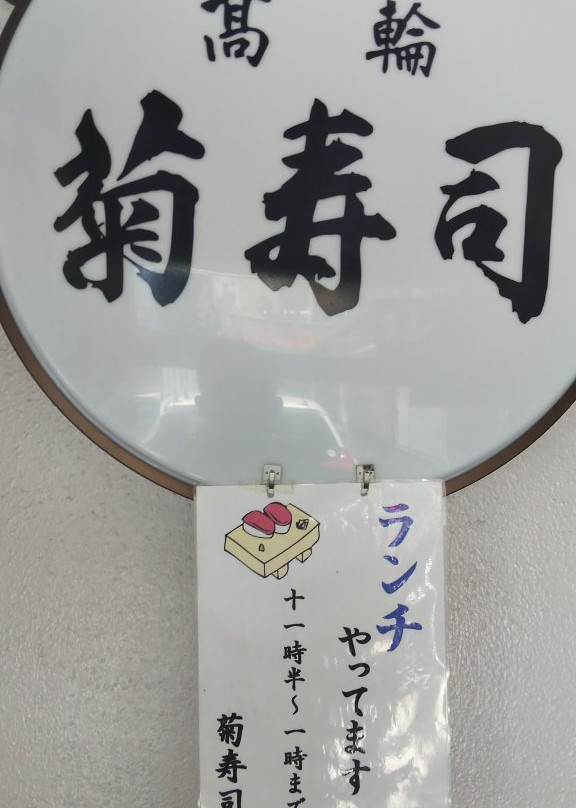 髙輪
菊寿司
ランチ
やってます
十一時半～一時まで
菊寿司